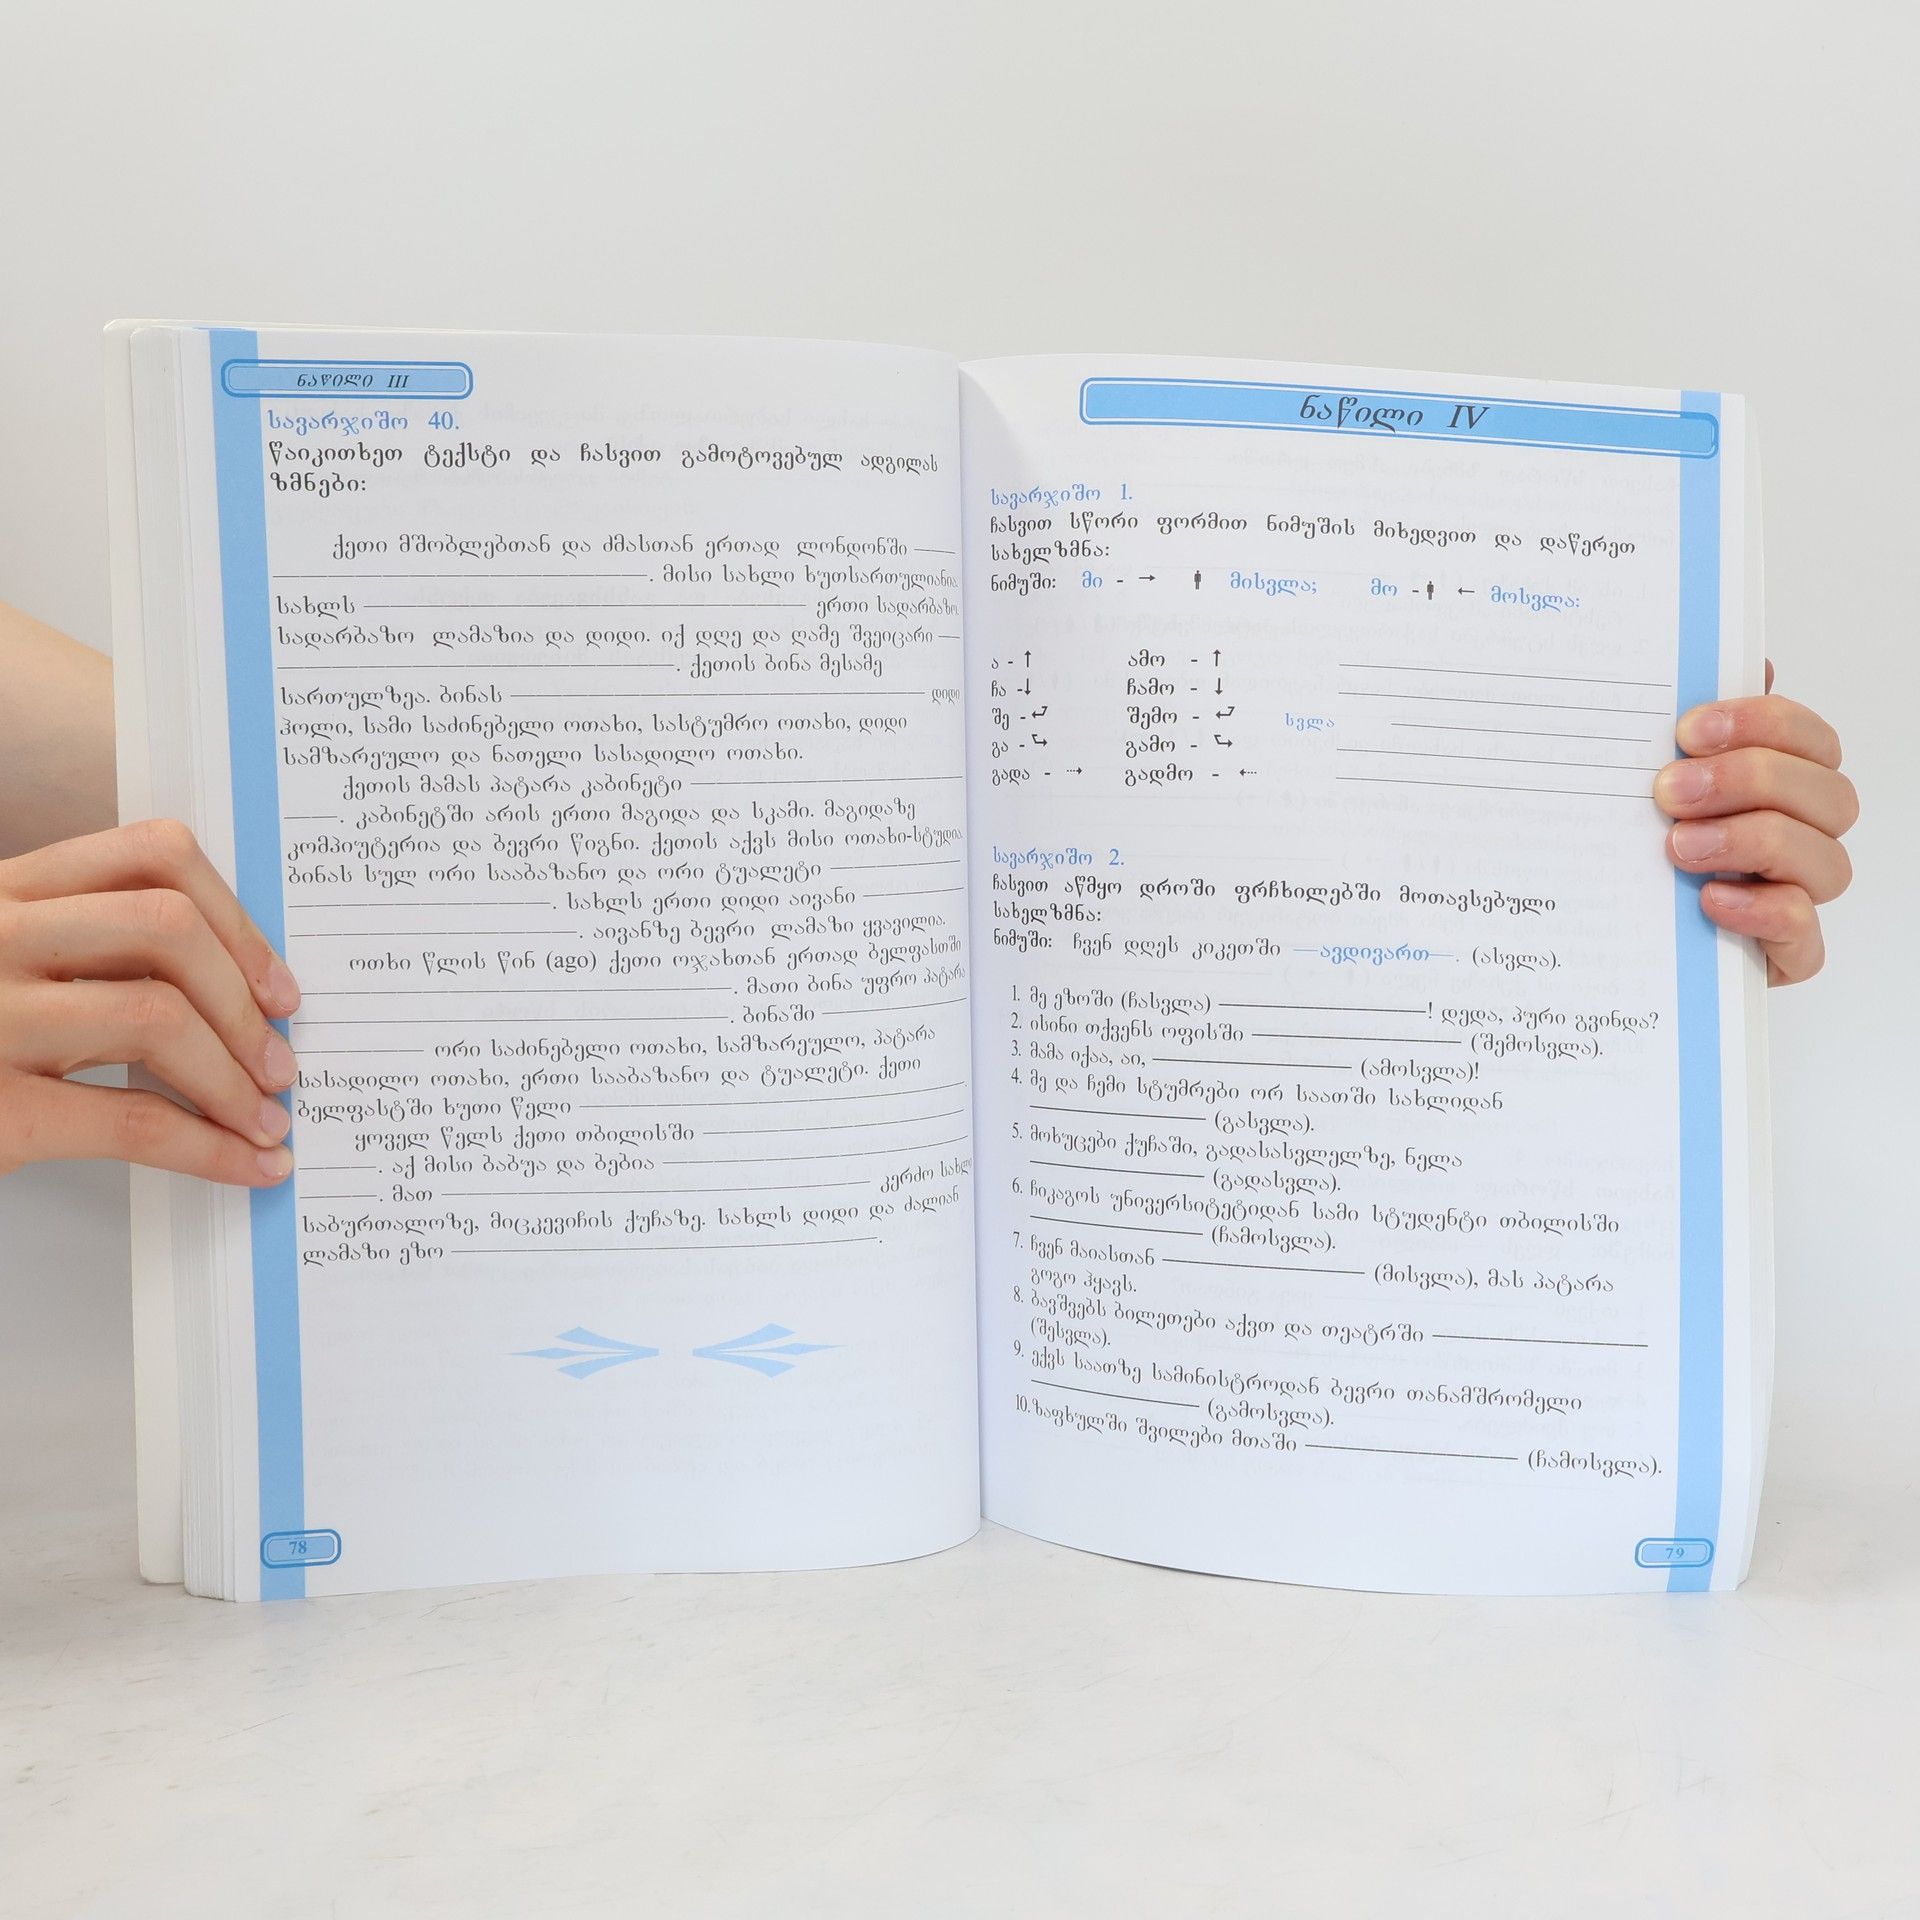 ნაწილი III
სავარჯიშო 40.
წაიკითხეთ ტექსტი და ჩასვით გამოტოვებულ ადგილას
ზმნები:
ქეთი მშობლებთან და ძმასთან ერთად ლონდონში ——
————————. მისი სახლი ხუთსართულიანია.
სახლს ———————— ერთი სადარბაზო.
სადარბაზო ლამაზია და დიდი. იქ დღე და ღამე შვეიცარი —
————————. ქეთის ბინა მესამე
სართულზეა. ბინას ———————— დიდი
ჰოლი, სამი საძინებელი ოთახი, სასტუმრო ოთახი, დიდი
სამზარეულო და ნათელი სასადილო ოთახი.
ქეთის მამას პატარა კაბინეტი ————————
——. კაბინეტში არის ერთი მაგიდა და სკამი. მაგიდაზე
კომპიუტერია და ბევრი წიგნი. ქეთის აქვს მისი ოთახი-სტუდია.
ბინას სულ ორი სააბაზანო და ორი ტუალეტი ————
————————. სახლს ერთი დიდი აივანი ————
————————. აივანზე ბევრი ლამაზი ყვავილია.
ოთხი წლის წინ (ago) ქეთი ოჯახთან ერთად ბელფასტში
————————. მათი ბინა უფრო პატარა
————————. ბინაში ————
———— ორი საძინებელი ოთახი, სამზარეულო, პატარა
სასადილო ოთახი, ერთი სააბაზანო და ტუალეტი. ქეთი
ბელფასტში ხუთი წელი ————————.
ყოველ წელს ქეთი თბილისში ————————
———. აქ მისი ბაბუა და ბებია ————————
———. მათ ———————— კერძო სახლი
საბურთალოზე, მიცკევიჩის ქუჩაზე. სახლს დიდი და ძალიან
ლამაზი ეზო ————————.
78
ნაწილი IV
სავარჯიშო 1.
ჩასვით სწორი ფორმით ნიმუშის მიხედვით და დაწერეთ
სახელზმნა:
ნიმუში: მი - → მისვლა; მო - ← მოსვლა:
ა - ↑ ამო - ↑ ————————
ჩა -↓ ჩამო - ↓ ————————
შე - ⮐ შემო - ⮐ სვლა ————————
გა - ↳ გამო - ↳ ————————
გადა - ⇢ გადმო - ⇠ ————————
სავარჯიშო 2.
ჩასვით აწმყო დროში ფრჩხილებში მოთავსებული
სახელზმნა:
ნიმუში: ჩვენ დღეს კიკეთში —ავდივართ—. (ასვლა).
1. მე ეზოში (ჩასვლა) ————————! დედა, პური გვინდა?
2. ისინი თქვენს ოფისში ———————— (შემოსვლა).
3. მამა იქაა, აი, ———————— (ამოსვლა)!
4. მე და ჩემი სტუმრები ორ საათში სახლიდან
———————— (გასვლა).
5. მოხუცები ქუჩაში, გადასასვლელზე, ნელა
———————— (გადასვლა).
6. ჩიკაგოს უნივერსიტეტიდან სამი სტუდენტი თბილისში
———————— (ჩამოსვლა).
7. ჩვენ მაიასთან ———————— (მისვლა), მას პატარა
გოგო ჰყავს.
8. ბავშვებს ბილეთები აქვთ და თეატრში ————————
(შესვლა).
9. ექვს საათზე სამინისტროდან ბევრი თანამშრომელი
———————— (გამოსვლა).
10. ზაფხულში შვილები მთაში ———————— (ჩამოსვლა).
79